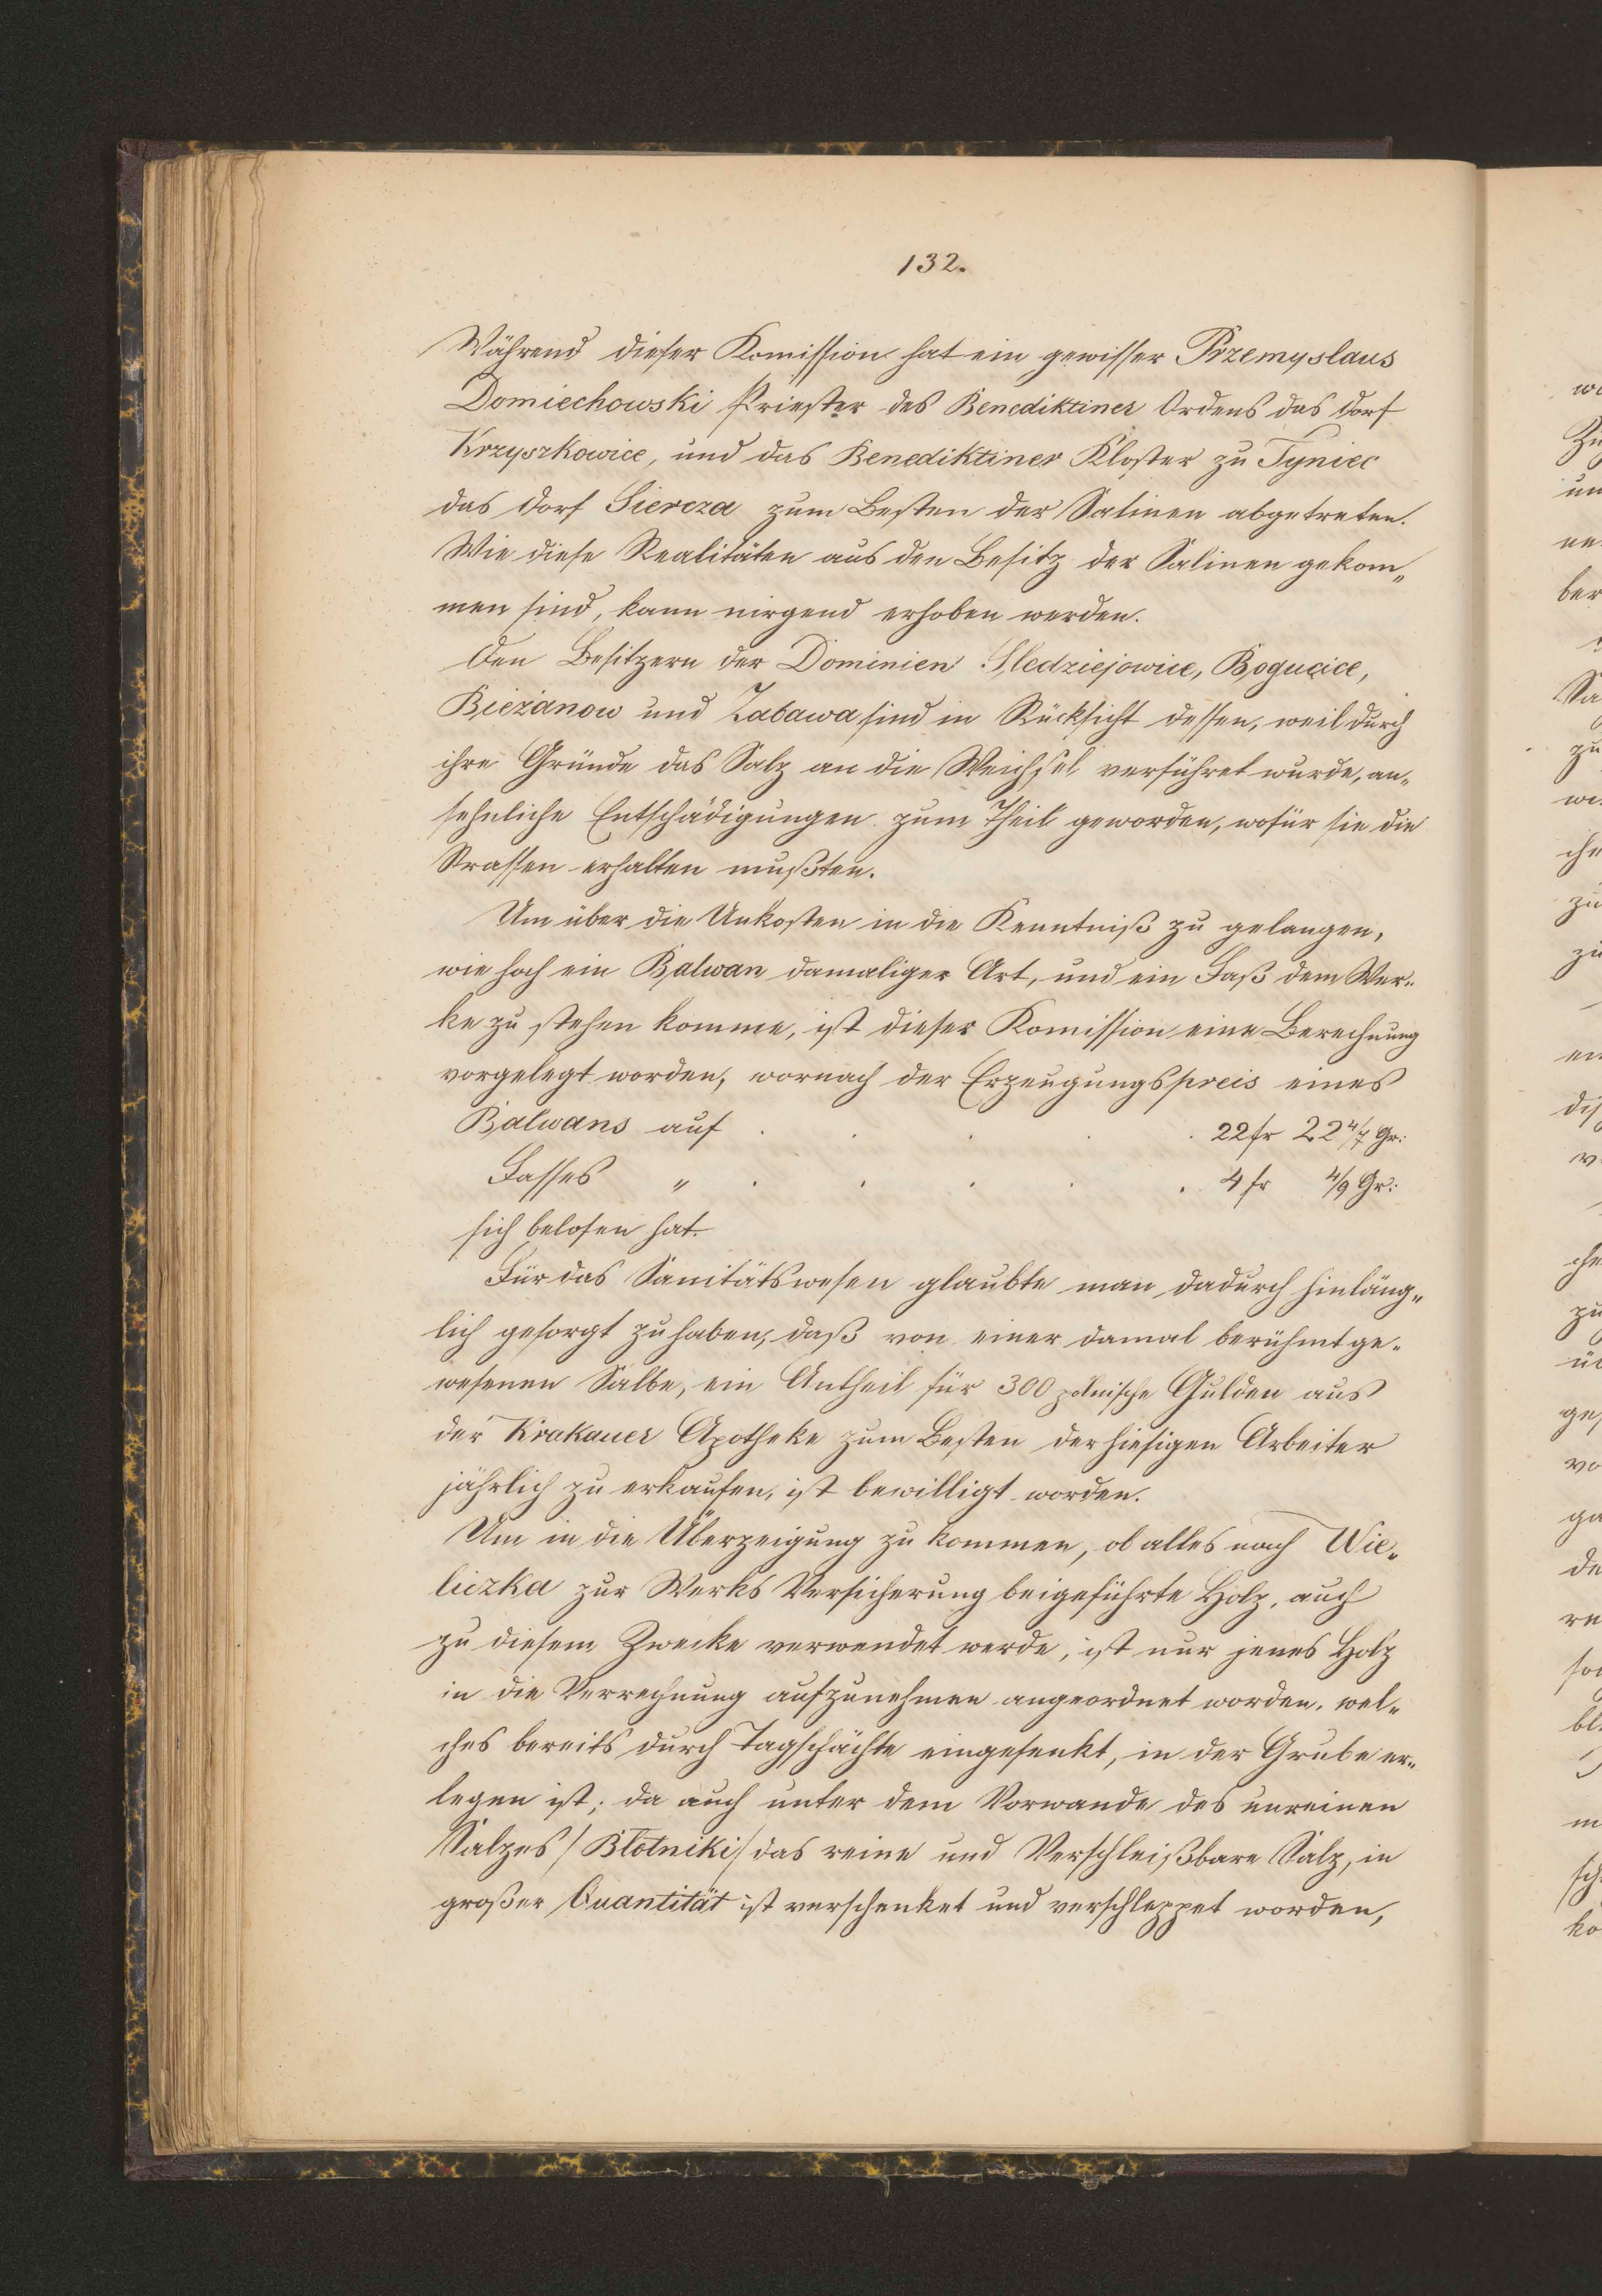 132.
Während dieser Komission hat ein gewisser Przemyslaus
Domiechowski Priester des Benediktiner Ordens das Dorf
Krzyszkowice, und das Benediktiner Kloster zu Tyniec
das Dorf Siercza zum Besten der Salinen abgetreten.
Wie diese Realitäten aus den Besitz der Salinen gekom„
men sind, kann nirgend erhoben werden.
Den Besitzern der Dominien Sledziejowice, Bogucice,
Bieżanow und Zabawa sind in Rücksicht dessen, weil durch
ihre Gründe das Salz an die Weichsel verführet wurde, an„
sehnliche Entschädigungen zum Theil geworden, wofür sie die
Strassen erhalten mußten.
Um über die Unkosten in die Kenntniß zu gelangen,
wie hoch ein Balwan damaliger Art, und ein Faß dem Wer„
ke zu stehen komme, ist dieser Komission eine Berechnung
vorgelegt worden, wornach der Erzeugungspreis eines
Balwans auf . . . . . 22 fr 22 4/7 Gr:
Fasses „ . . . . . 4 fr 4/9 Gr:
sich belofen hat.
Für das Sanitätswesen glaubte man dadurch hinläng„
lich gesorgt zu haben, daß von einer damal berühmt ge„
wesenen Salbe, ein Antheil für 300 polnische Gulden aus
der Krakauer Apotheke zum Besten der hiesigen Arbeiter
jährlich zu erkaufen, ist bewilligt worden.
Um in die Überzeigung zu kommen, ob alles nach Wie„
liczka zur Werks Versicherung beigeführte Holz, auch
zu diesem Zwecke verwendet werde, ist nur jenes Holz
in die Verrechnung aufzunehmen angeordnet worden, wel„
ches bereits durch Tagschächte eingesenkt, in der Grube er„
legen ist; da auch unter dem Vorwande des unreinen
Salzes /Błotniki/ das reine und Verschleißbare Salz, in
großer Quantität ist verschenket und verschleppet worden,